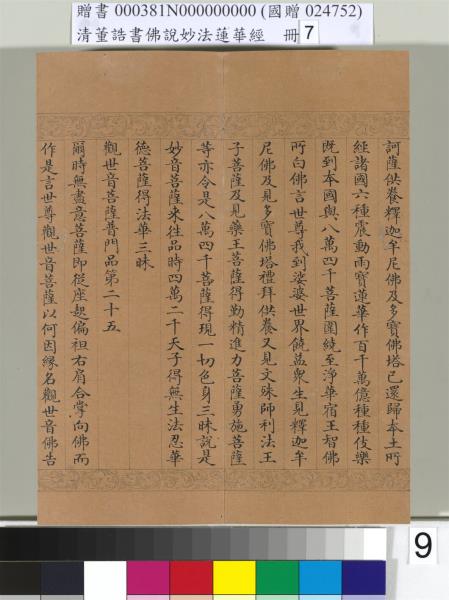 贈書 000381N000000000 (國贈 024752)
清董誥書佛說妙法蓮華經 冊 7
訶薩供養釋迦牟尼佛及多寶佛塔已還歸本土所
經諸國六種震動雨寶蓮華作百千萬億種種伎樂
既到本國與八萬四千菩薩圍繞至淨華宿王智佛
所白佛言世尊我到娑婆世界饒益眾生見釋迦牟
尼佛及見多寶佛塔禮拜供養又見文殊師利法王
子菩薩及見藥王菩薩得勤精進力菩薩勇施菩薩
等亦令是八萬四千菩薩得現一切色身三昧說是
妙音菩薩來往品時四萬二千天子得無生法忍華
德菩薩得法華三昧
觀世音菩薩普門品第二十五
爾時無盡意菩薩即從座起偏袒右肩合掌向佛而
作是言世尊觀世音菩薩以何因緣名觀世音佛告
9